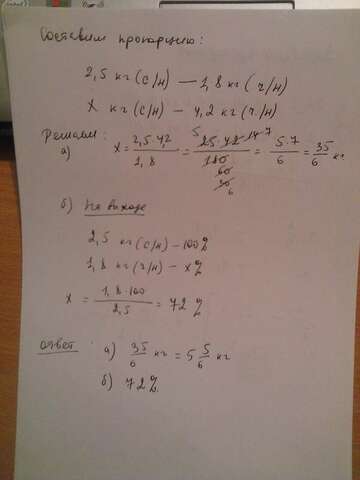 Составим пропорцию:
2,5 кг (с/н) — 1,8 кг (ч/н)
х кг (с/н) — 4,2 кг (ч/н)
Решаем:
а) х = 2,5·4,2 / 1,8 = 25·42 / 180 = 5·7 / 6 = 35/6 кг
5 14 7
60
30
6
б) На выходе
2,5 кг (с/н) — 100%
1,8 кг (ч/н) — х%
х = 1,8·100 / 2,5 = 72%
Ответ: а) 35/6 кг = 5 5/6 кг
б) 72%